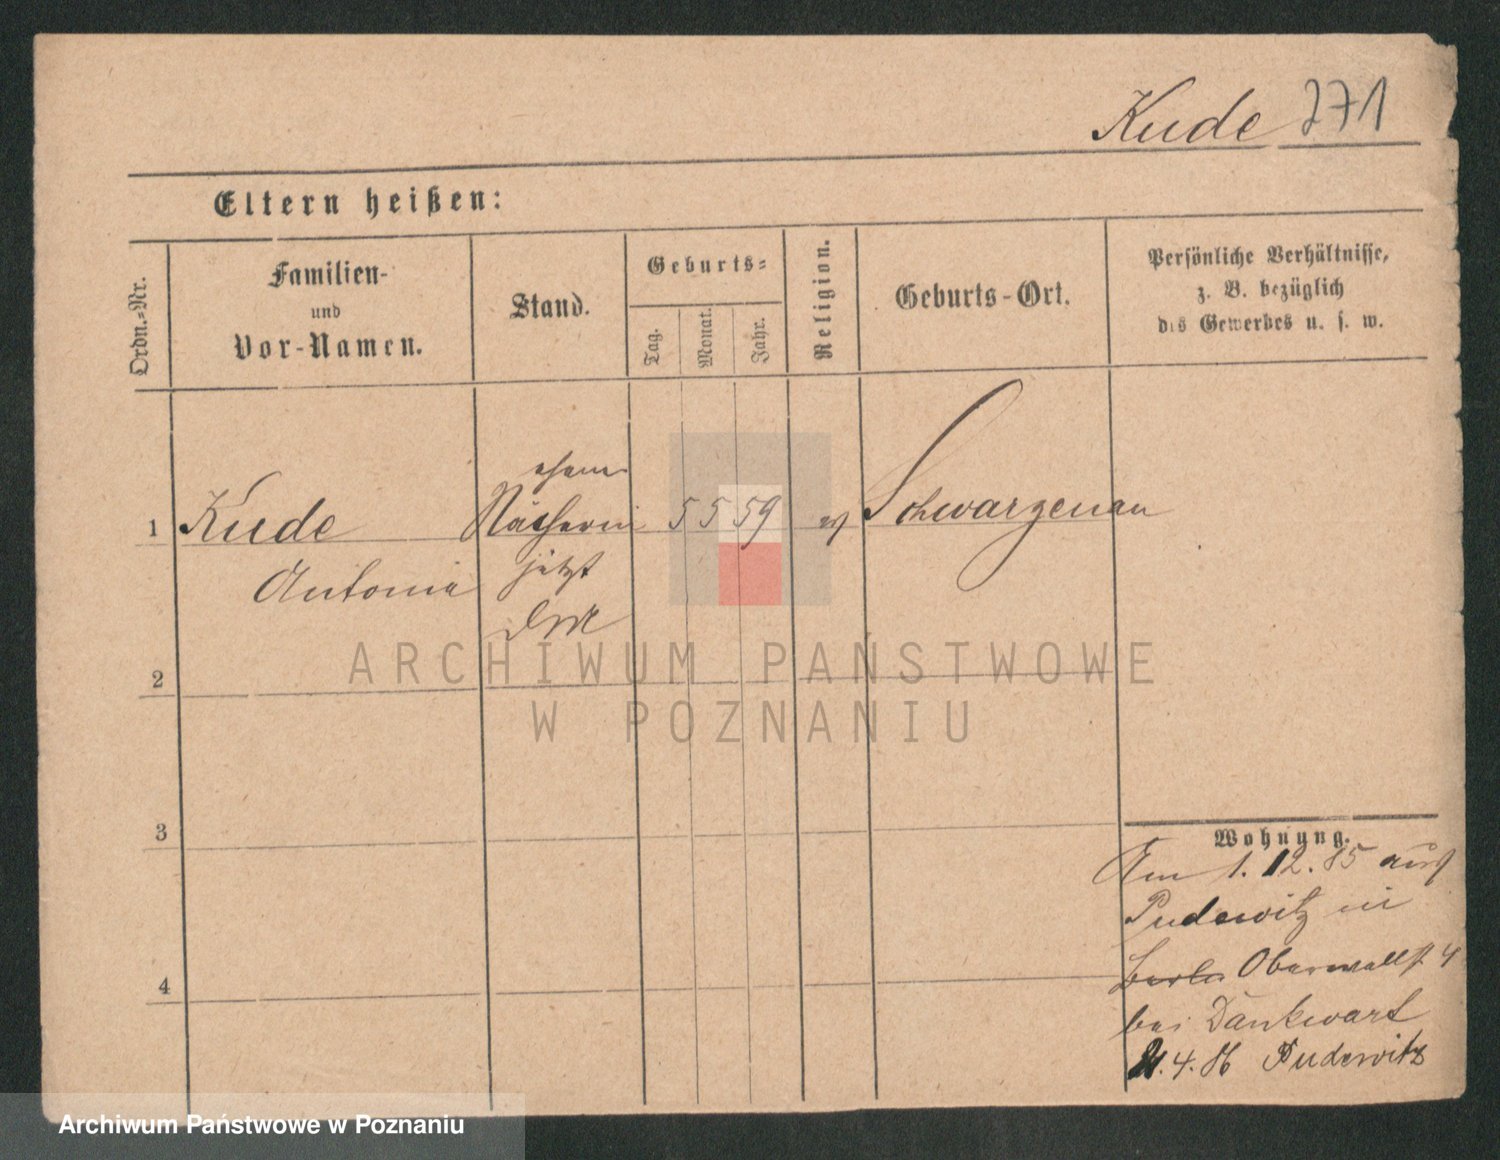 Kude 271
Eltern heißen:
Ordn.-Nr.
Familien-
und
Vor-Namen.
Stand.
Geburts-
Tag.
Monat.
Jahr.
Religion.
Geburts-Ort.
Persönliche Verhältnisse,
z. B. bezüglich
des Gewerbes u. s. w.
1 Kude Näherin 5 5 59 Schwarzenau
Antonie jetzt
2
3
4
Wohnung.
Am 1.12.85 aus
Pudewitz in
Oberwallst 4
bei Dankwart
4.86 Pudewitz
ARCHIWUM PAŃSTWOWE
W POZNANIU
Archiwum Państwowe w Poznaniu